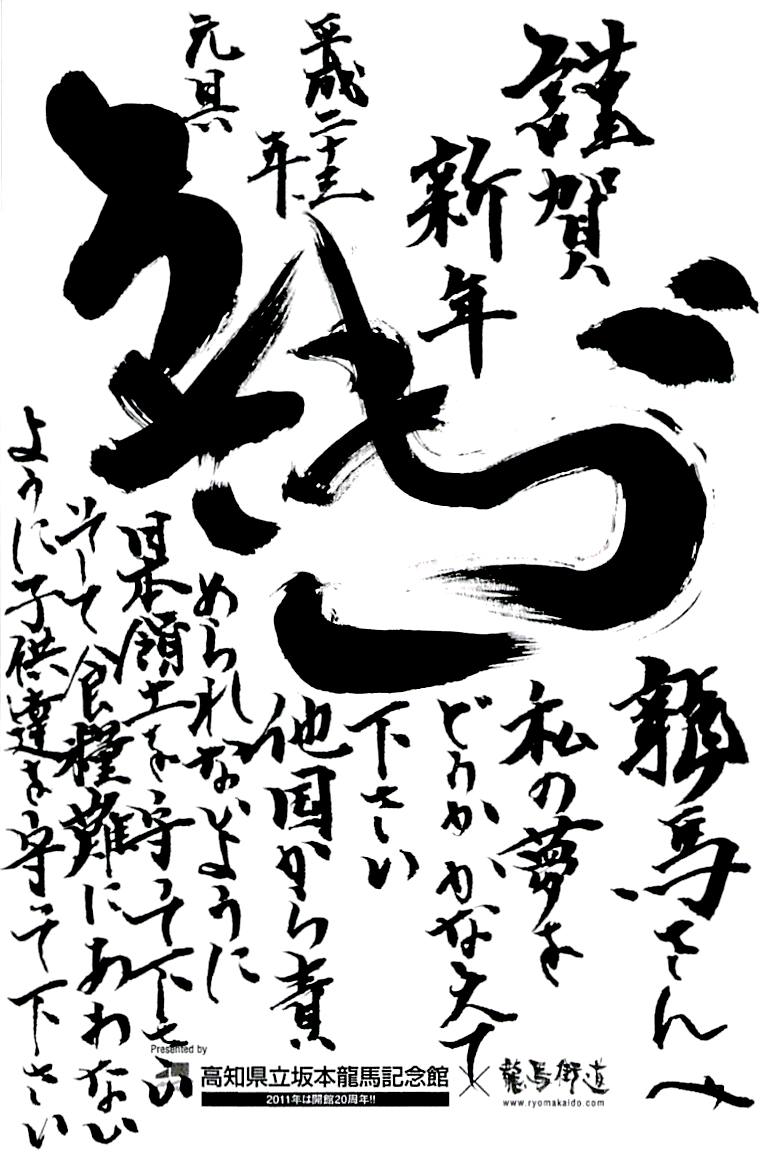 謹賀
新年
平成二十三
年
元旦
龍馬さんへ
私の夢を
どうかかなえて
下さい
他国から責
められないように
日本領土を守って下さい
そして食糧難にあわない
ように子供達を守って下さい
Presented by
高知県立坂本龍馬記念館
2011年は開館20周年!!
×
龍馬街道
www.ryomakaido.com